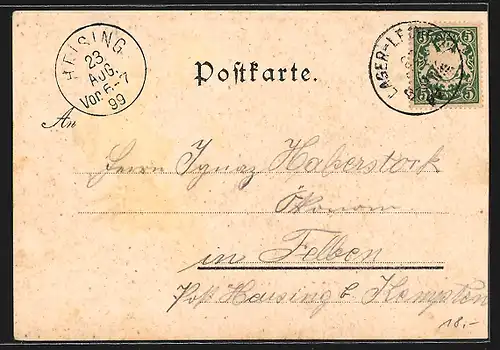 HEISING.
23.
AUG.
Vor. 6-7
99
LAGER-LE
5 5
5 5
Postkarte.
An
Herrn Ignaz Haberstock
Ökonom
in Felben
Post Haising b Kempten
18,-